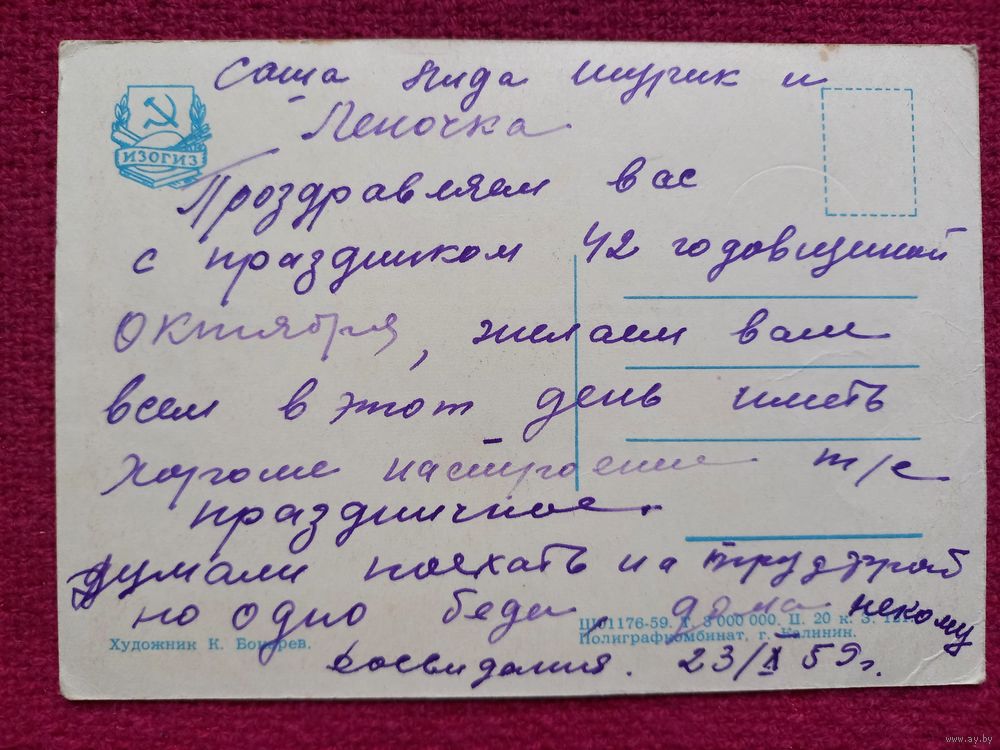 Саша Лида Шурик и
Леночка
ИЗОГИЗ
Проздравляем вас
с праздником 42 годовщиной
Октября, желаем вам
всем в этот день иметь
хороше настроение т/е
праздничное.
думали поехать на
но одно беда дома некому
Художник К. Бочарев.
Ц01176-59. Т. 3 000 000. Ц. 20 к. З.
Полиграфкомбинат, г. Калинин.
досвидания. 23/X 59 г.
www.ay.by